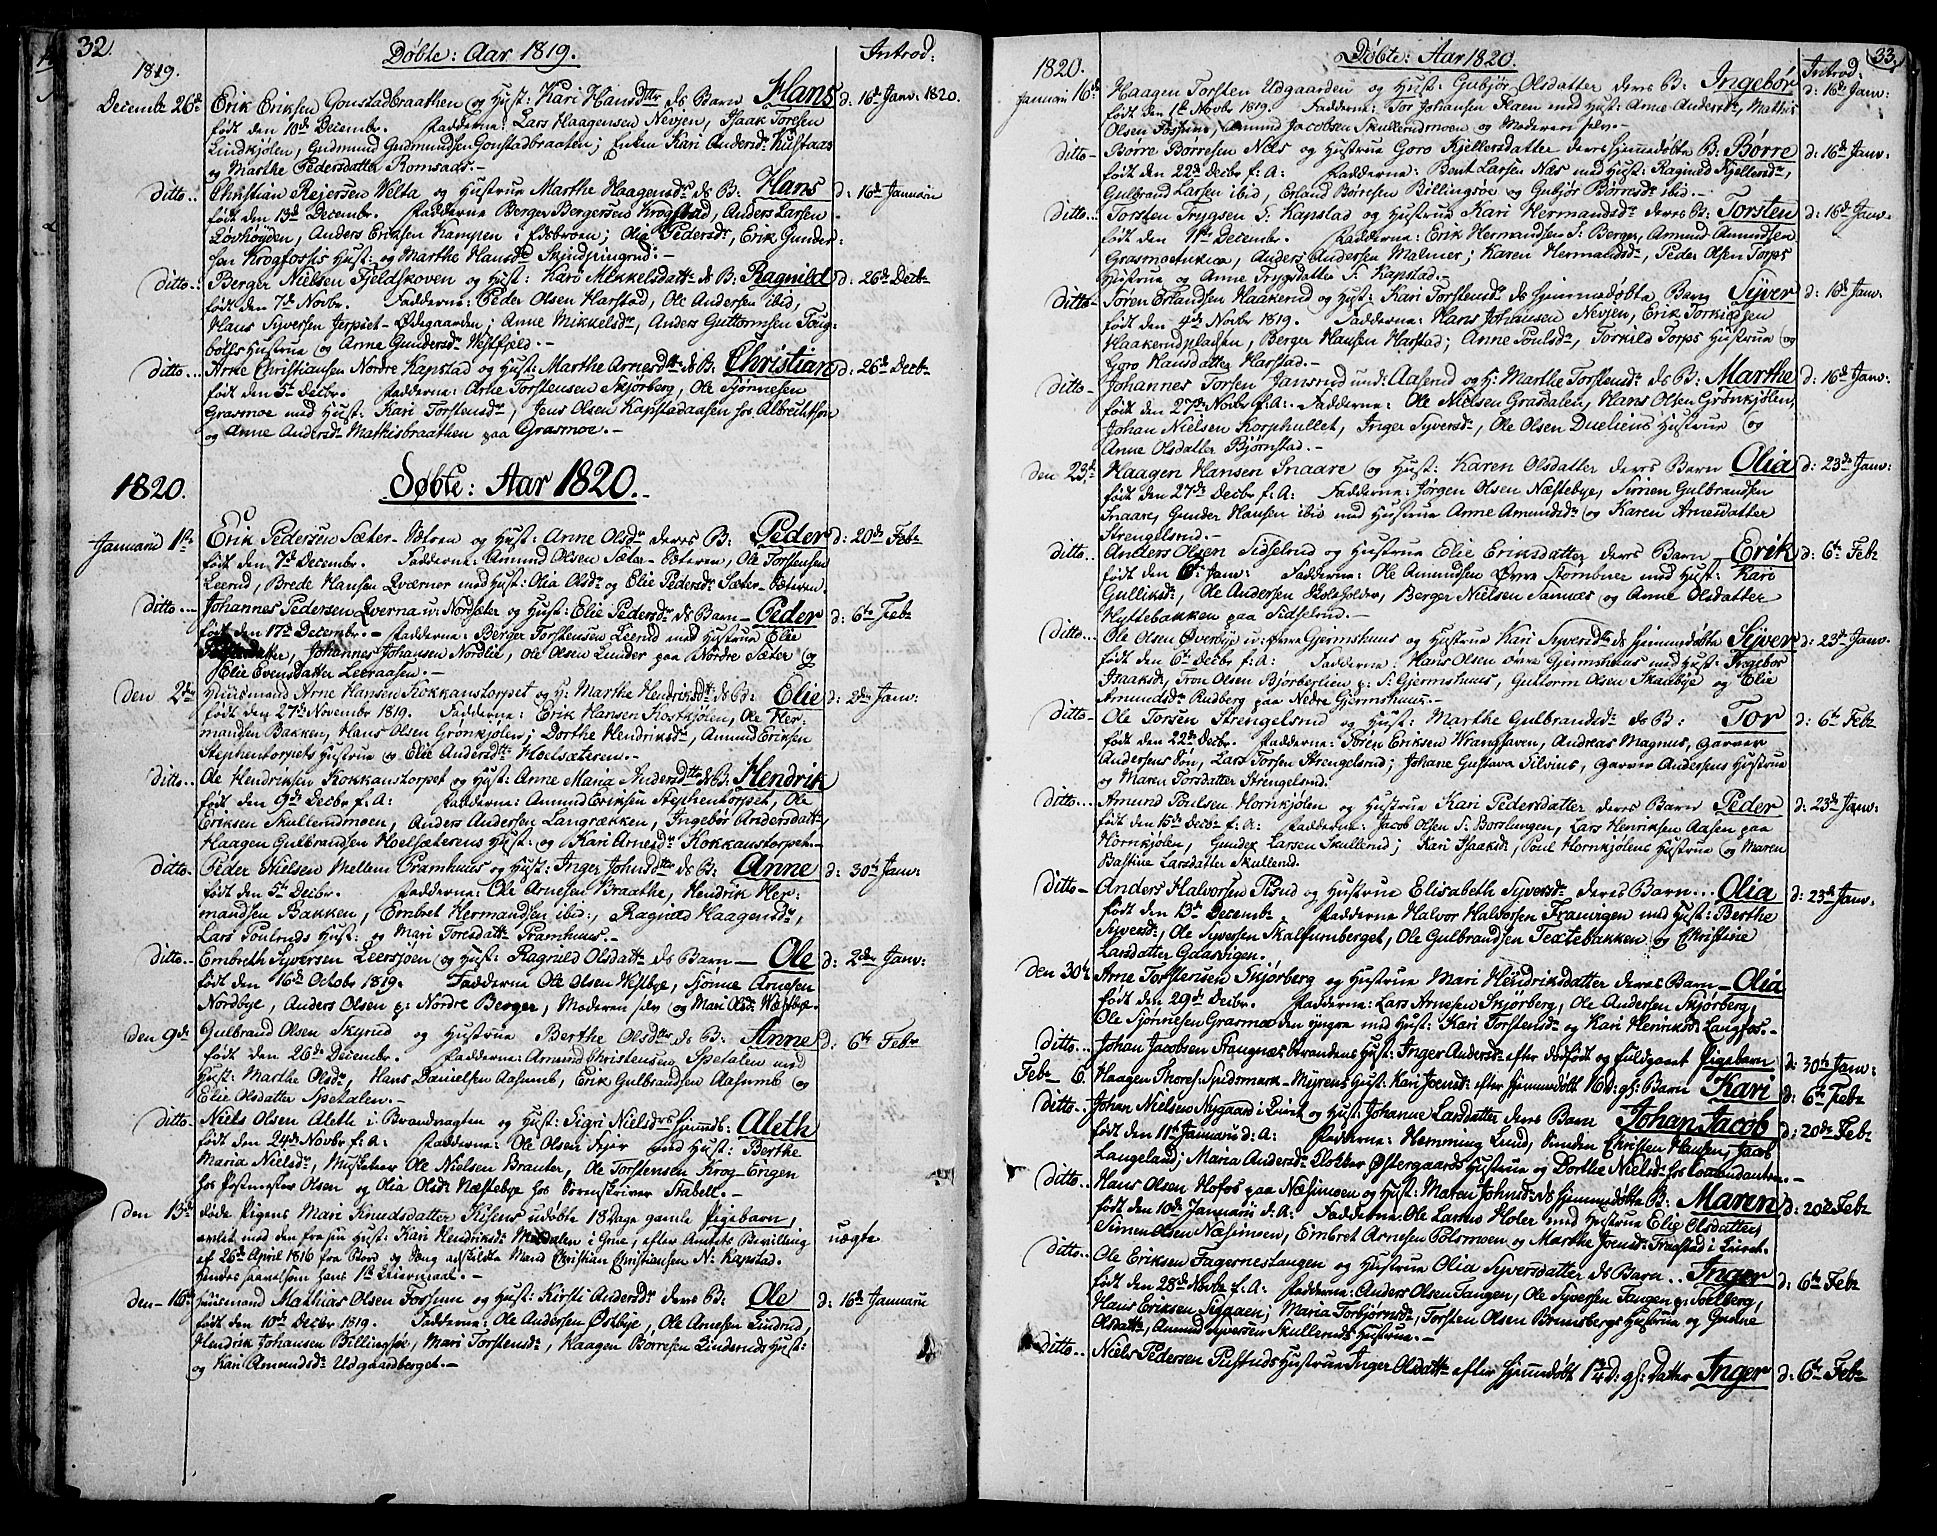 32.
Døbte: Aar 1819.
Introd:
1819.
Decembr 26de Erik Eriksen Gonstadbraathen og Hust: Kari Hansdttr ds Barn Hans d: 16de Janv: 1820.
født den 10de Decembr. Fadderne: Lars Haagensen Nevjen, Isaak Toresen
Lindkjølen, Gudmund Gudmundsen Gonstadbraaten; Enken Kari Andersdr Kustaas
og Marthe Pedersdatter Romsaas.-
ditto.. Christian Reiersen Velta og Hustrue Marthe Haagensdr ds B: Hans d: 16de Januarii
født den 13de Decembr. Fadderne Berger Bergersen Krogstad, Anders Larsen
Løvhøyden, Anders Eriksen Kampen i Eidsbroen; Olia Pedersdr, Erik Gunder-
sen Krogfosses Hust: og Marthe Hansdr Skindpungrud.-
ditto.. Berger Nielsen Fjeldskoven og Hust: Kari Mikkelsdattr ds B: Ragnild d: 26de Decbr
født den 7de Novbr. Fadderne: Peder Olsen Harstad, Ole Andersen ibid,
Hans Syversen Jerpset-Ødegaarden; Anne Mikkelsdr, Anders Guttormsen Toug-
bølls Hustrue og Anne Gundersdr Vestfjeld.-
ditto... Arne Christiansen Nordre Kapstad og Hust: Marthe Arnesdttr ds B. Christian d: 26de Decbr
født den 5te Decbr. Fadderne: Arne Torstensen Skjørberg, Ole Sjønnesen
Grasmoe med Hust: Kari Torstensdr, Jens Olsen Kapstadaasen hos Albrechtsen
og Anne Andersdr Mathisbraathen paa Grasmoe.-
1820. Døbte: Aar 1820.-
Januarii 1ste Erik Pedersen Sæter-Østren og Hust: Anne Olsdr deres B: Peder d: 20de Febr
født den 7de Decembr. Fadderne: Amund Olsen Sæter-Østeren, Ole Torstensen
Leerud, Brede Hansen Qværner med Hust: Olia Olsdr og Elie Pedersdr Sæter-Østeren.
ditto... Johannes Pedersen Qverna u: Nordsæter og Hust: Elie Pedersdr ds Barn - Peder d: 6te Febr
født den 17de Decembr.- Fadderne: Berger Torstensen Leerud med Hustrue Elie
Johannes Johansen Nordlie, Ole Olsen Lunder paa Nordre Sæter og
Elie Evensdatter Leeraasen.-
den 2den Huusmand Arne Hansen Kokkanstorpet og H: Marthe Hendriksdttr ds B: Elie d: 2den Janv:
født den 27de Novembr 1819. Fadderne: Erik Hansen Kostkjølen, Ole Her-
mandsen Bakken, Hans Olsen Grønkjølen; Dorthe Hendriksdr, Amund Eriksen
Stephentorpets Hustrue og Elie Andersdttr Moelsæteren.-
ditto.. Ole Hendriksen Kokkanstorpet og Hust: Anne Maria Andersdttr ds B: Hendrik
født den 9de Decbr f: A: Fadderne: Amund Eriksen Stephentorpet, Ole
Eriksen Skullerudmoen, Anders Andersen Langrækken, Ingebør Andersdattr,
Haagen Gulbrandsen Hoelsæterens Hust: og Kari Arnesdr Kokkanstorpet.-
ditto- Peder Nielsen Mellem Pramhuus og Hust: Inger Johnsdttr ds B: Anne d: 30te Janv:
født den 5te Decbr. Fadderne: Ole Arnesen Braathe, Hendrik Her-
mandsen Bakken, Embret Hermandsen ibid:, Ragnild Haagensdr,
Lars Poulruds Hust: og Mari Toresdattr Pramhuus.-
ditto.- Embreth Syversen Leersjøen og Hust: Ragnild Olsdattr ds Barn - Ole d: 2den Janv:
født den 16de Octobr 1819. Fadderne Ole Olsen Vestbye, Sjønne Arnesen
Nordbye, Anders Olsen p: Nordre Berger, Moderen selv og Mari Olsdr Næstbye.
den 9de Gulbrand Olsen Skyrud og Hustrue Berthe Olsdttr ds B: Anne d: 6te Febr
født den 26de Decembr. Fadderne: Amund Christensen Spetalen med
Hust: Marthe Olsdr, Hans Danielsen Aasumb, Erik Gulbrandsen Aasumb og
Elie Olsdatter Spetalen.-
ditto- Niels Olsen Aleth i Brandvagten og Hust: Sigri Nielsdrs hjemdb: Aleth
født den 24de Novbr f: A: Fadderne: Ole Olsen Skjør med Hust: Berthe
Maria Nielsdr, Musketeer Ole Nielsen Brauter, Ole Torstensen Krog-Engen
hos Postmester Olsen og Olia Olsdr Næstebye hos Sorenskriver Stabell.-
den 13de døde Pigens Mari Knudsdatter Kisens udøbte 18 Dage gamle Pigebarn, uægte
avlet med den fra sin Hust: Kari Hendriksdr Masdalen i Grue, efter Amtets Bevilling
af 26de April 1816 fra Bord og Seng adskildte Mand Christian Christiansen N: Kapstad.
Hendes saavelsom hans 1ste Leiermaal.-
den-16de Huusmand Mathias Olsen Forsunn og Hust: Kirsti Andersdr deres B: Ole d: 16de Januarii
født den 10de Decbr 1819. Fadderne: Ole Andersen Østbye, Ole Arnesen Linderud,
Hendrik Johansen Billingsøe, Mari Torstensdr, Haagen Børresen Linderuds Hust:
og Kari Amundsdr Udgaardberget.-
33.
Døbte: Aar 1820.
Introd:
1820.
Januarii 16de Haagen Torsten Udgaarden og Hust: Gubjør Olsdatter deres B: Ingebør d: 16de Janv:
født den 1ste Novbr 1819. Fadderne: Tor Johansen Skaen med Hust: Anne Andersdr, Mathis
Olsen Fossum, Amund Jacobsen Skullerudmoen og Moderen selv.-
ditto- Børre Børresen Næs og Hustrue Goro Kjellersdatter deres hjemmedøbte B: Børre d: 16de Janv:
født den 22de Decbr f: A: Fadderne: Bent Larsen Næs med Hust: Ragnild Kjellersdr,
Gulbrand Larsen ibid, Erland Børresen Billingsøe og Gubjør Børresdr ibid.-
ditto... Torsten Trygsen S: Kapstad og Hustrue Kari Hermandsdr deres B: Torsten d: 16de Janv:
født den 11te Decembr. Fadderne: Erik Hermandsen S: Berger, Amund Amundsen
Grasmoenekra, Anders Andersen Malmer; Karen Hermandsdr, Peder Olsen Torps
Hustrue og Anne Trygsdatter S: Kapstad.-
Ditto- Soren Erlandsen Haakerud og Hust: Kari Torstensdr ds hjemmedøbte Barn Syver d: 16de Janv:
født den 4de Novbr 1819. Fadderne: Hans Johansen Nevjen, Erik Torkildsen
Haakerudpladsen, Berger Hansen Harstad; Anne Poulsdr, Torkild Torps Hustrue og
Goro Hansdatter Harstad.-
ditto- Johannes Torsen Jansrud und: Aaserud og H: Marthe Torstensdr ds B: Marthe d: 16de Janv:
født den 27de Novbr f: A:. Fadderne: Ole Nielsen Grasdalen, Hans Olsen Grønkjølen,
Johan Nielsen Korphullet, Inger Syversdr, Ole Olsen Dueliens Hustrue og
Anne Olsdatter Bjørnstad.-
den 23de Haagen Hansen Snaare og Hust: Karen Olsdatter deres Barn Olia d: 23de Janv:
født den 27de Decbr f: A: Fadderne: Jørgen Olsen Næstebye, Simen Gulbrandsen
Snaare, Gunder Hansen ibid med Hustrue Anne Amundsdr og Karen Arnesdatter
Strengelsrud.-
ditto.. Anders Olsen Sidselrud og Hustrue Elie Eriksdatter deres Barn - Erik d: 6te Febr
født den 6te Janv: Fadderne: Ole Amundsen Øvre Stømbner med Hust: Kari
Gulliksdr, Ole Andersen Skoleholder, Berger Nielsen Sannæs og Anne Olsdatter
Hyttebakken paa Sidselrud.-
ditto.. Ole Olsen Øverbye u: Øvre Gjermshuus og Hustrue Kari Syversdttr ds hjemmedøbte Syver d: 23de Janv:
født den 6te Decbr f: A: Fadderne: Hans Olsen Øvre Gjermshuus med Hust: Ingebor
Isaaksdr, Tron Olsen Bjørberlien p: S: Gjermshuus, Guttorm Olsen Skanbye og Elie
Amundsdr Rudberg paa Nedre Gjermshuus.-
ditto- Ole Torsen Strengelsrud og Hust: Marthe Gulbrandsdr ds B: Tor d: 6te Febr
født den 22de Decbr. Fadderne: Søren Eriksen Wranghaven, Andreas Magnus, Garver
Andersens Søn, Lars Torsen Strengelsrud; Johane Gustava Silvius, Garver Andersens Hustrue
og Maren Torsdatter Strengelsrud.-
ditto... Amund Poulsen Hornkjølen og Hustrue Kari Pedersdatter deres Barn Peder d: 23de Janv:
født den 15de Decbr f: A: Fadderne: Jacob Olsen S: Borslungen, Lars Henriksen Aasen paa
Hornkjølen, Gunder Larsen Skullerud; Kari Isaaksdr, Poul Hornkjølens Hustrue og Maren
Bastine Larsdatter Skullerud.
ditto- Anders Halvorsen Tisrud og Hustrue Elisabeth Syversdr deres Barn... Olia d: 23de Janv:
født den 13de Decembr Fadderne Halvor Halvorsen Framvigen med Hust: Berthe
Syversdr, Ole Syversen Skalfurnberget, Ole Gulbrandsen Teatebakken og Christine
Larsdatter Gaasvigen.
den 30te Arne Torstensen Skjørberg og Hustrue Mari Hendriksdatter deres Barn - Olia
født den 29de Decbr. Fadderne: Lars Arnesen Skjørberg, Ole Andersen Skjørberg,
Ole Sjønnesen Grasmoe den yngre med Hust: Kari Torstensdr og Kari Henriksdr Langfos.-
ditto... Johan Jacobsen Stangnæs Strandens Hust: Inger Andersdr efter dødfødt og fuldgaaet Pigebarn d: 30te Janv:
Febr 6. Haagen Thores: Spidsmark-Myrens Hust: Kari Joensdr efter hjemmedøbt 16 D: gl: Barn Kari d: 6te Febr
ditto.. Johan Nielsen Nygaard i Leiret og Hust: Johanne Larsdatter deres Barn Johan Jacob d: 20de Febr
født den 11te Januarii d: A: Fadderne: Hemming Lund, Svenden Christen Hansen, Jacob
Langeland; Maria Andersdr Klokker Østergaards Hustrue og Dorthe Nielsdr hos Comandanten.-
ditto.. Hans Olsen Hofos paa Næsimoen og Hust: Maren Johnsdr ds hjemmedøbte B: Maren d: 20de Febr
født den 10de Januarii d: A: Fadderne: Ole Larsen Holer med Hustrue Elie Olsdatter,
Simen Olsen Næsimoen, Embret Arnesen Polsmoen og Marthe Joensdr Fraastad i Leiret.
ditto- Ole Eriksen Fagernestangen og Hustrue Olia Syversdatter ds Barn.. Inger d: 6te Febr
født den 28de Novbr f: A: Fadderne: Anders Olsen Tangen, Ole Syversen Tangen p: Toelberg,
Hans Eriksen Siggaen; Maria Torbjørnsdr, Torsten Olsen Brunsbergs Hustrue og Gudne
Olsdattr, Amund Syversen Skulleruds Hustrue.-
ditto.. Niels Pedersen Pustruds Hustrue Inger Olsdattr efter hjemmedøbt 1 3/4 D: gl: Datter Inger d: 6te Febr